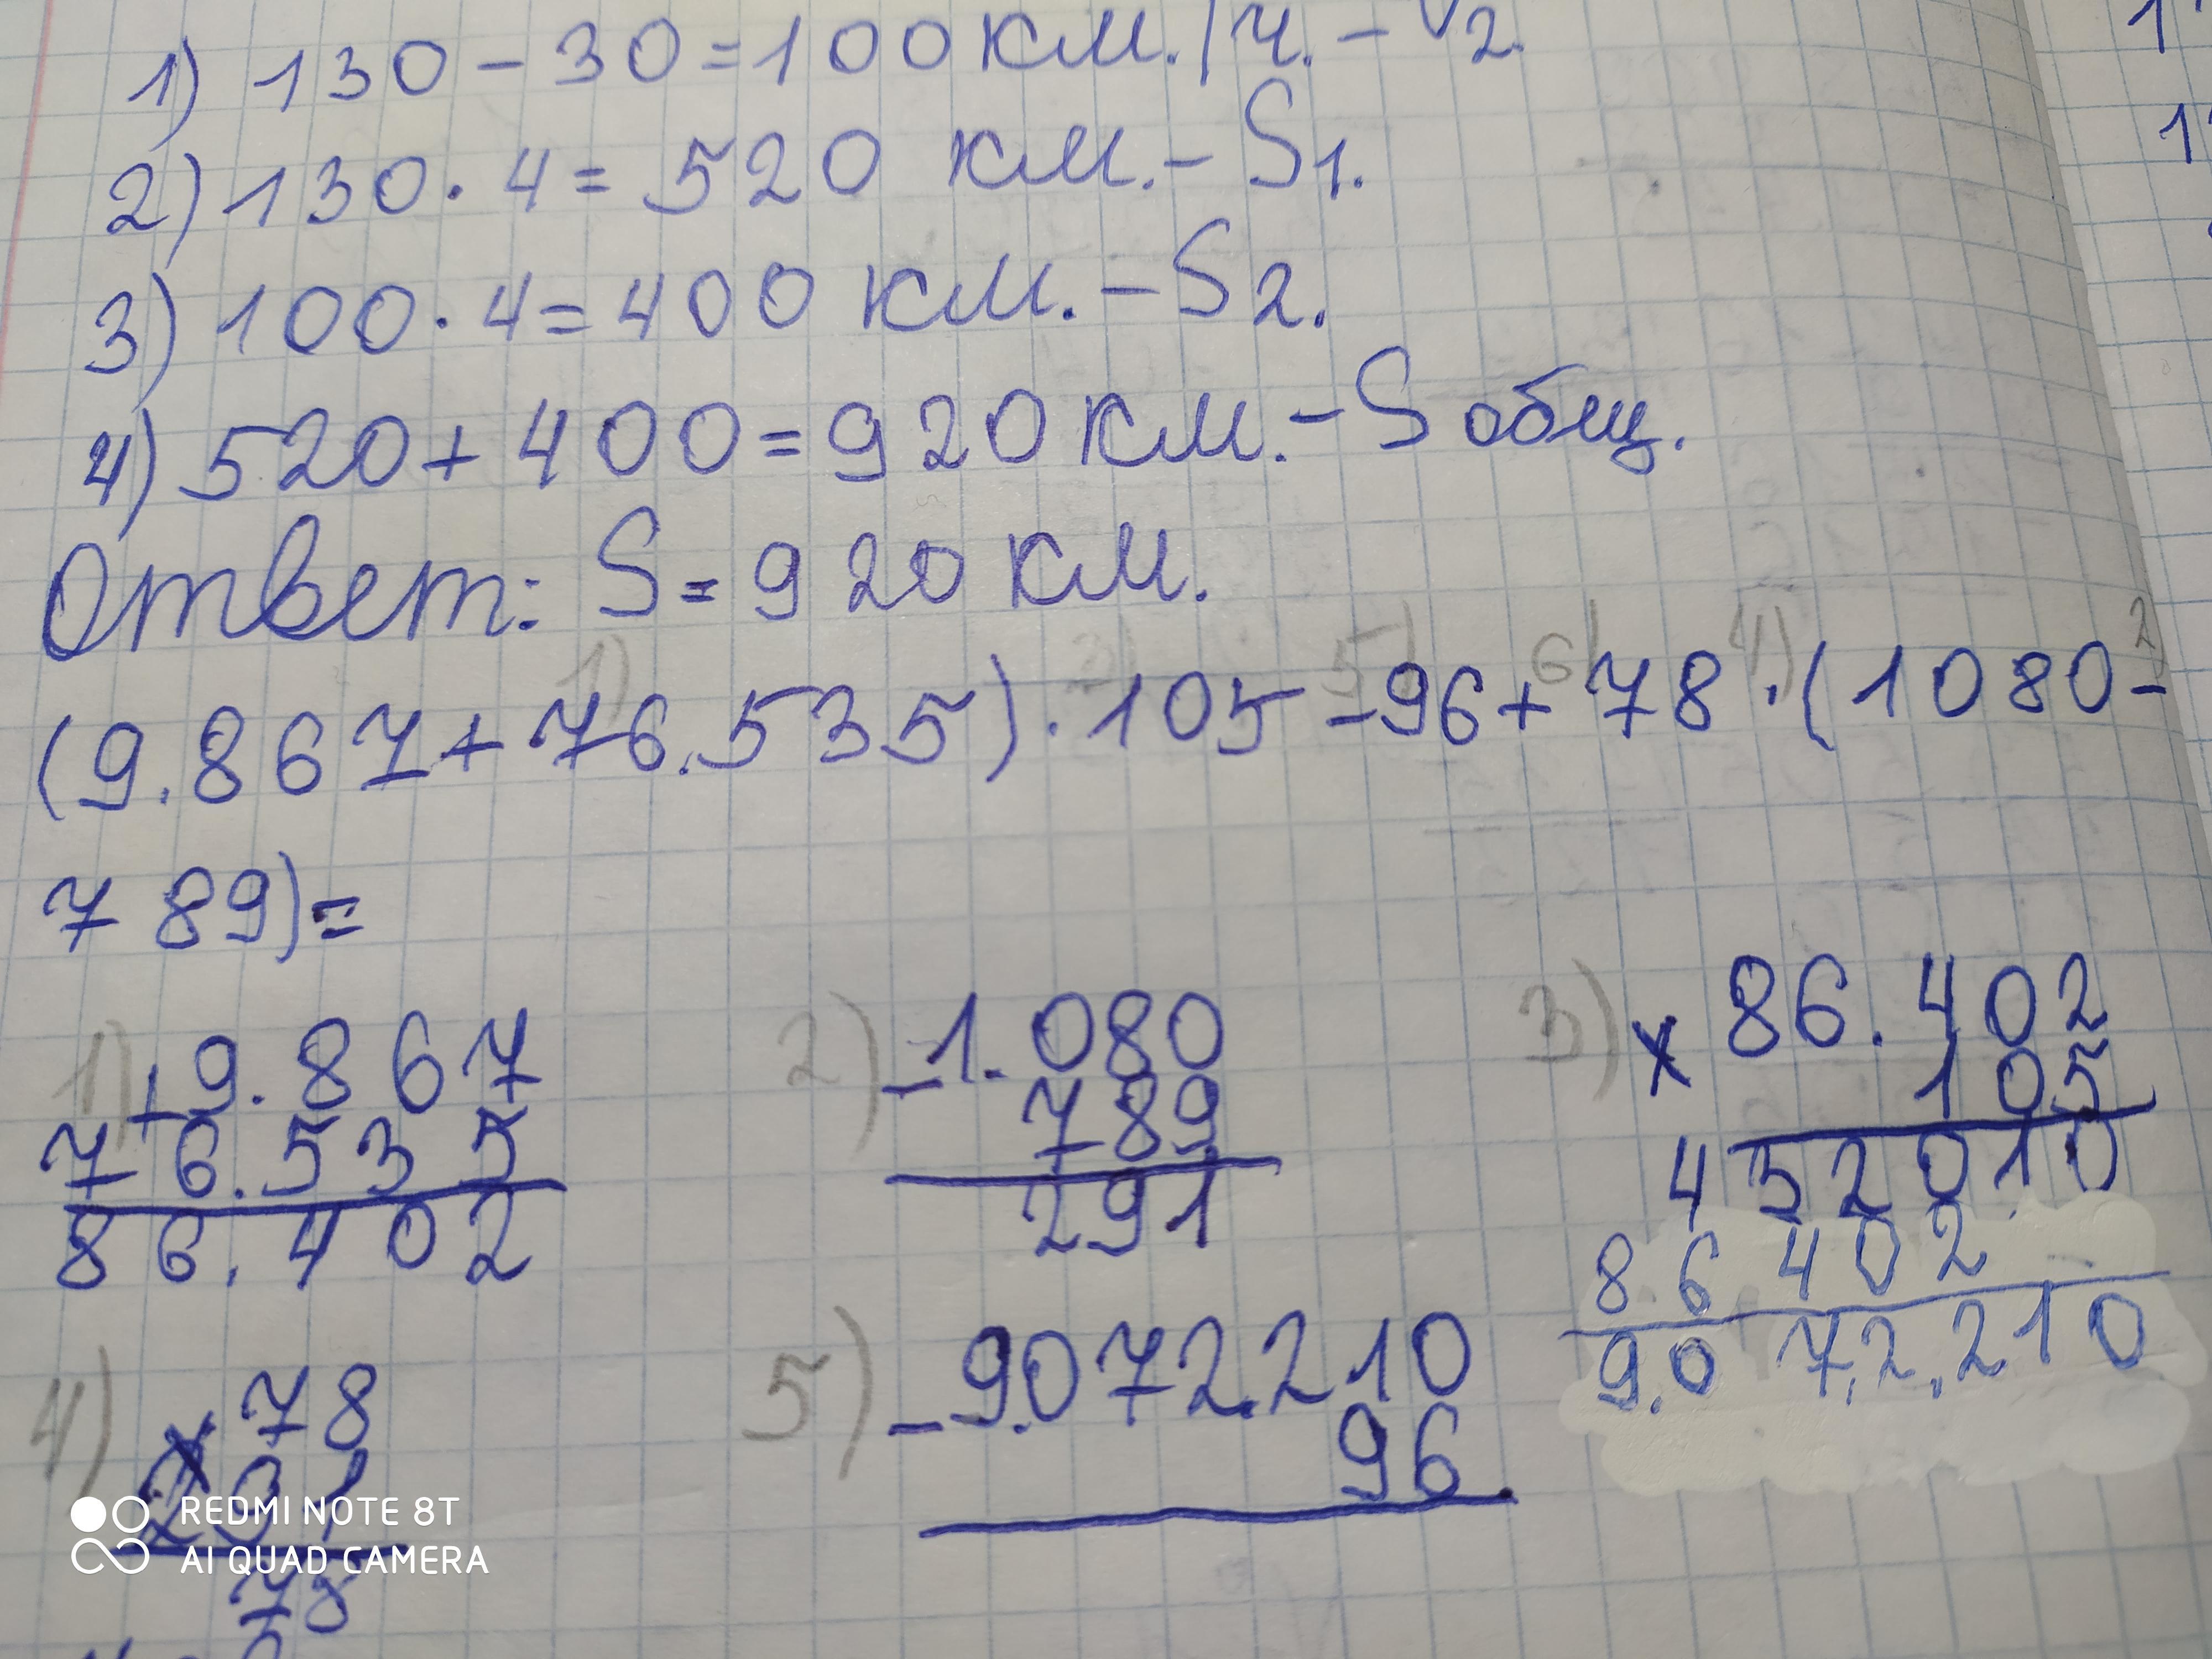 1) 130 - 30 = 100 км./ч. - V2.
2) 130 · 4 = 520 км. - S1.
3) 100 · 4 = 400 км. - S2.
4) 520 + 400 = 920 км. - S общ.
Ответ: S = 920 км.
1) 3) 5) 6) 4) 2)
(9.867 + 76.535) · 105 - 96 + 78 · (1080 -
789) =
1) + 9.867
76.535
86.402
2) - 1.080
789
291
3) x 86.402
105
432010
86402
9.072.210
4) x 78
78
5) - 9.072.210
96.
REDMI NOTE 8T
AI QUAD CAMERA